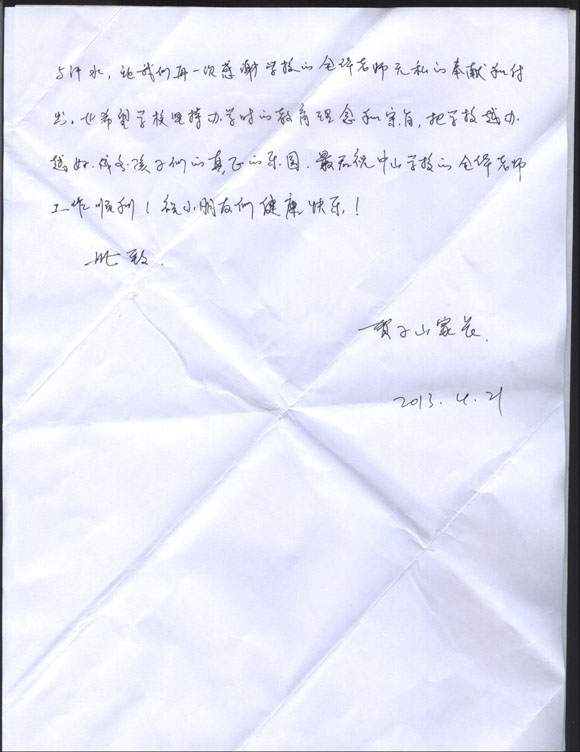 与汗水，让我们再一次感谢学校的全体老师无私的奉献和付
出。也希望学校坚持办学时的教育理念和宗旨，把学校越办
越好，成为孩子们的真正的乐园。最后祝中山学校的全体老师
工作顺利！祝小朋友们健康快乐！
此致.
贾子山家长.
2013.4.21